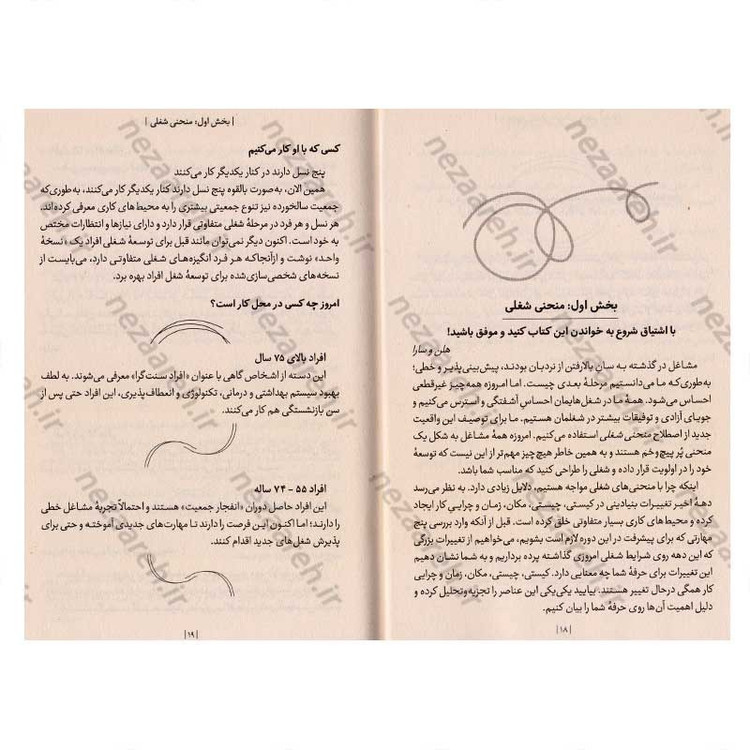 بخش اول: منحنی شغلی
با اشتیاق شروع به خواندن این کتاب کنید و موفق باشید!
هلن و سارا
مشاغل در گذشته به سان بالارفتن از نردبان بودند، پیش‌بینی‌پذیر و خطی؛
به‌طوری‌که ما می‌دانستیم مرحلهٔ بعدی چیست. اما امروزه همه‌چیز غیرقطعی
احساس می‌شود. همهٔ ما در شغل‌هایمان احساس آشفتگی و استرس می‌کنیم و
جویای آزادی و توفیقات بیشتر در شغلمان هستیم. ما برای توصیف این واقعیت
جدید از اصطلاح منحنی شغلی استفاده می‌کنیم. امروزه همهٔ مشاغل به شکل یک
منحنی پُر پیچ‌وخم هستند و به همین خاطر هیچ‌چیز مهم‌تر از این نیست که توسعهٔ
خود را در اولویت قرار داده و شغلی را طراحی کنید که مناسب شما باشد.
اینکه چرا با منحنی‌های شغلی مواجه هستیم، دلایل زیادی دارد. به نظر می‌رسد
دههٔ اخیر تغییرات بنیادینی در کیستی، چیستی، مکان، زمان و چرایی کار ایجاد
کرده و محیط‌های کاری بسیار متفاوتی خلق کرده است. قبل از آنکه وارد بررسی پنج
مهارتی که برای پیشرفت در این دوره لازم است بشویم، می‌خواهیم از تغییرات بزرگی
که این دهه روی شرایط شغلی امروزی گذاشته پرده برداریم و به شما نشان دهیم
این تغییرات برای حرفهٔ شما چه معنایی دارد. کیستی، چیستی، مکان، زمان و چرایی
کار همگی درحال تغییر هستند. بیایید یکی‌یکی این عناصر را تجزیه‌وتحلیل کرده و
دلیل اهمیت آن‌ها روی حرفهٔ شما را بیان کنیم.
|۱۸|
| بخش اول: منحنی شغلی |
کسی که با او کار می‌کنیم
پنج نسل دارند در کنار یکدیگر کار می‌کنند
همین الان، به‌صورت بالقوه پنج نسل دارند کنار یکدیگر کار می‌کنند، به‌طوری‌که
جمعیت سالخورده نیز تنوع جمعیتی بیشتری را به محیط‌های کاری معرفی کرده‌اند.
هر نسل و هر فرد در مرحلهٔ شغلی متفاوتی قرار دارد و دارای نیازها و انتظارات مختص
به خود است. اکنون دیگر نمی‌توان مانند قبل برای توسعهٔ شغلی افراد یک «نسخهٔ
واحد» نوشت و ازآنجاکه هر فرد انگیزه‌های شغلی متفاوتی دارد، می‌بایست از
نسخه‌های شخصی‌سازی‌شده برای توسعهٔ شغل افراد بهره برد.
امروز چه کسی در محل کار است؟
افراد بالای ۷۵ سال
این دسته از اشخاص گاهی با عنوان «افراد سنت‌گرا» معرفی می‌شوند. به لطف
بهبود سیستم بهداشتی و درمانی، تکنولوژی و انعطاف‌پذیری، این افراد حتی پس از
سن بازنشستگی هم کار می‌کنند.
افراد ۵۵ – ۷۴ ساله
این افراد حاصل دوران «انفجار جمعیت» هستند و احتمالاً تجربهٔ مشاغل خطی
را دارند؛ اما اکنون این فرصت را دارند تا مهارت‌های جدیدی آموخته و حتی برای
پذیرش شغل‌های جدید اقدام کنند.
|۱۹|
nezaareh.ir